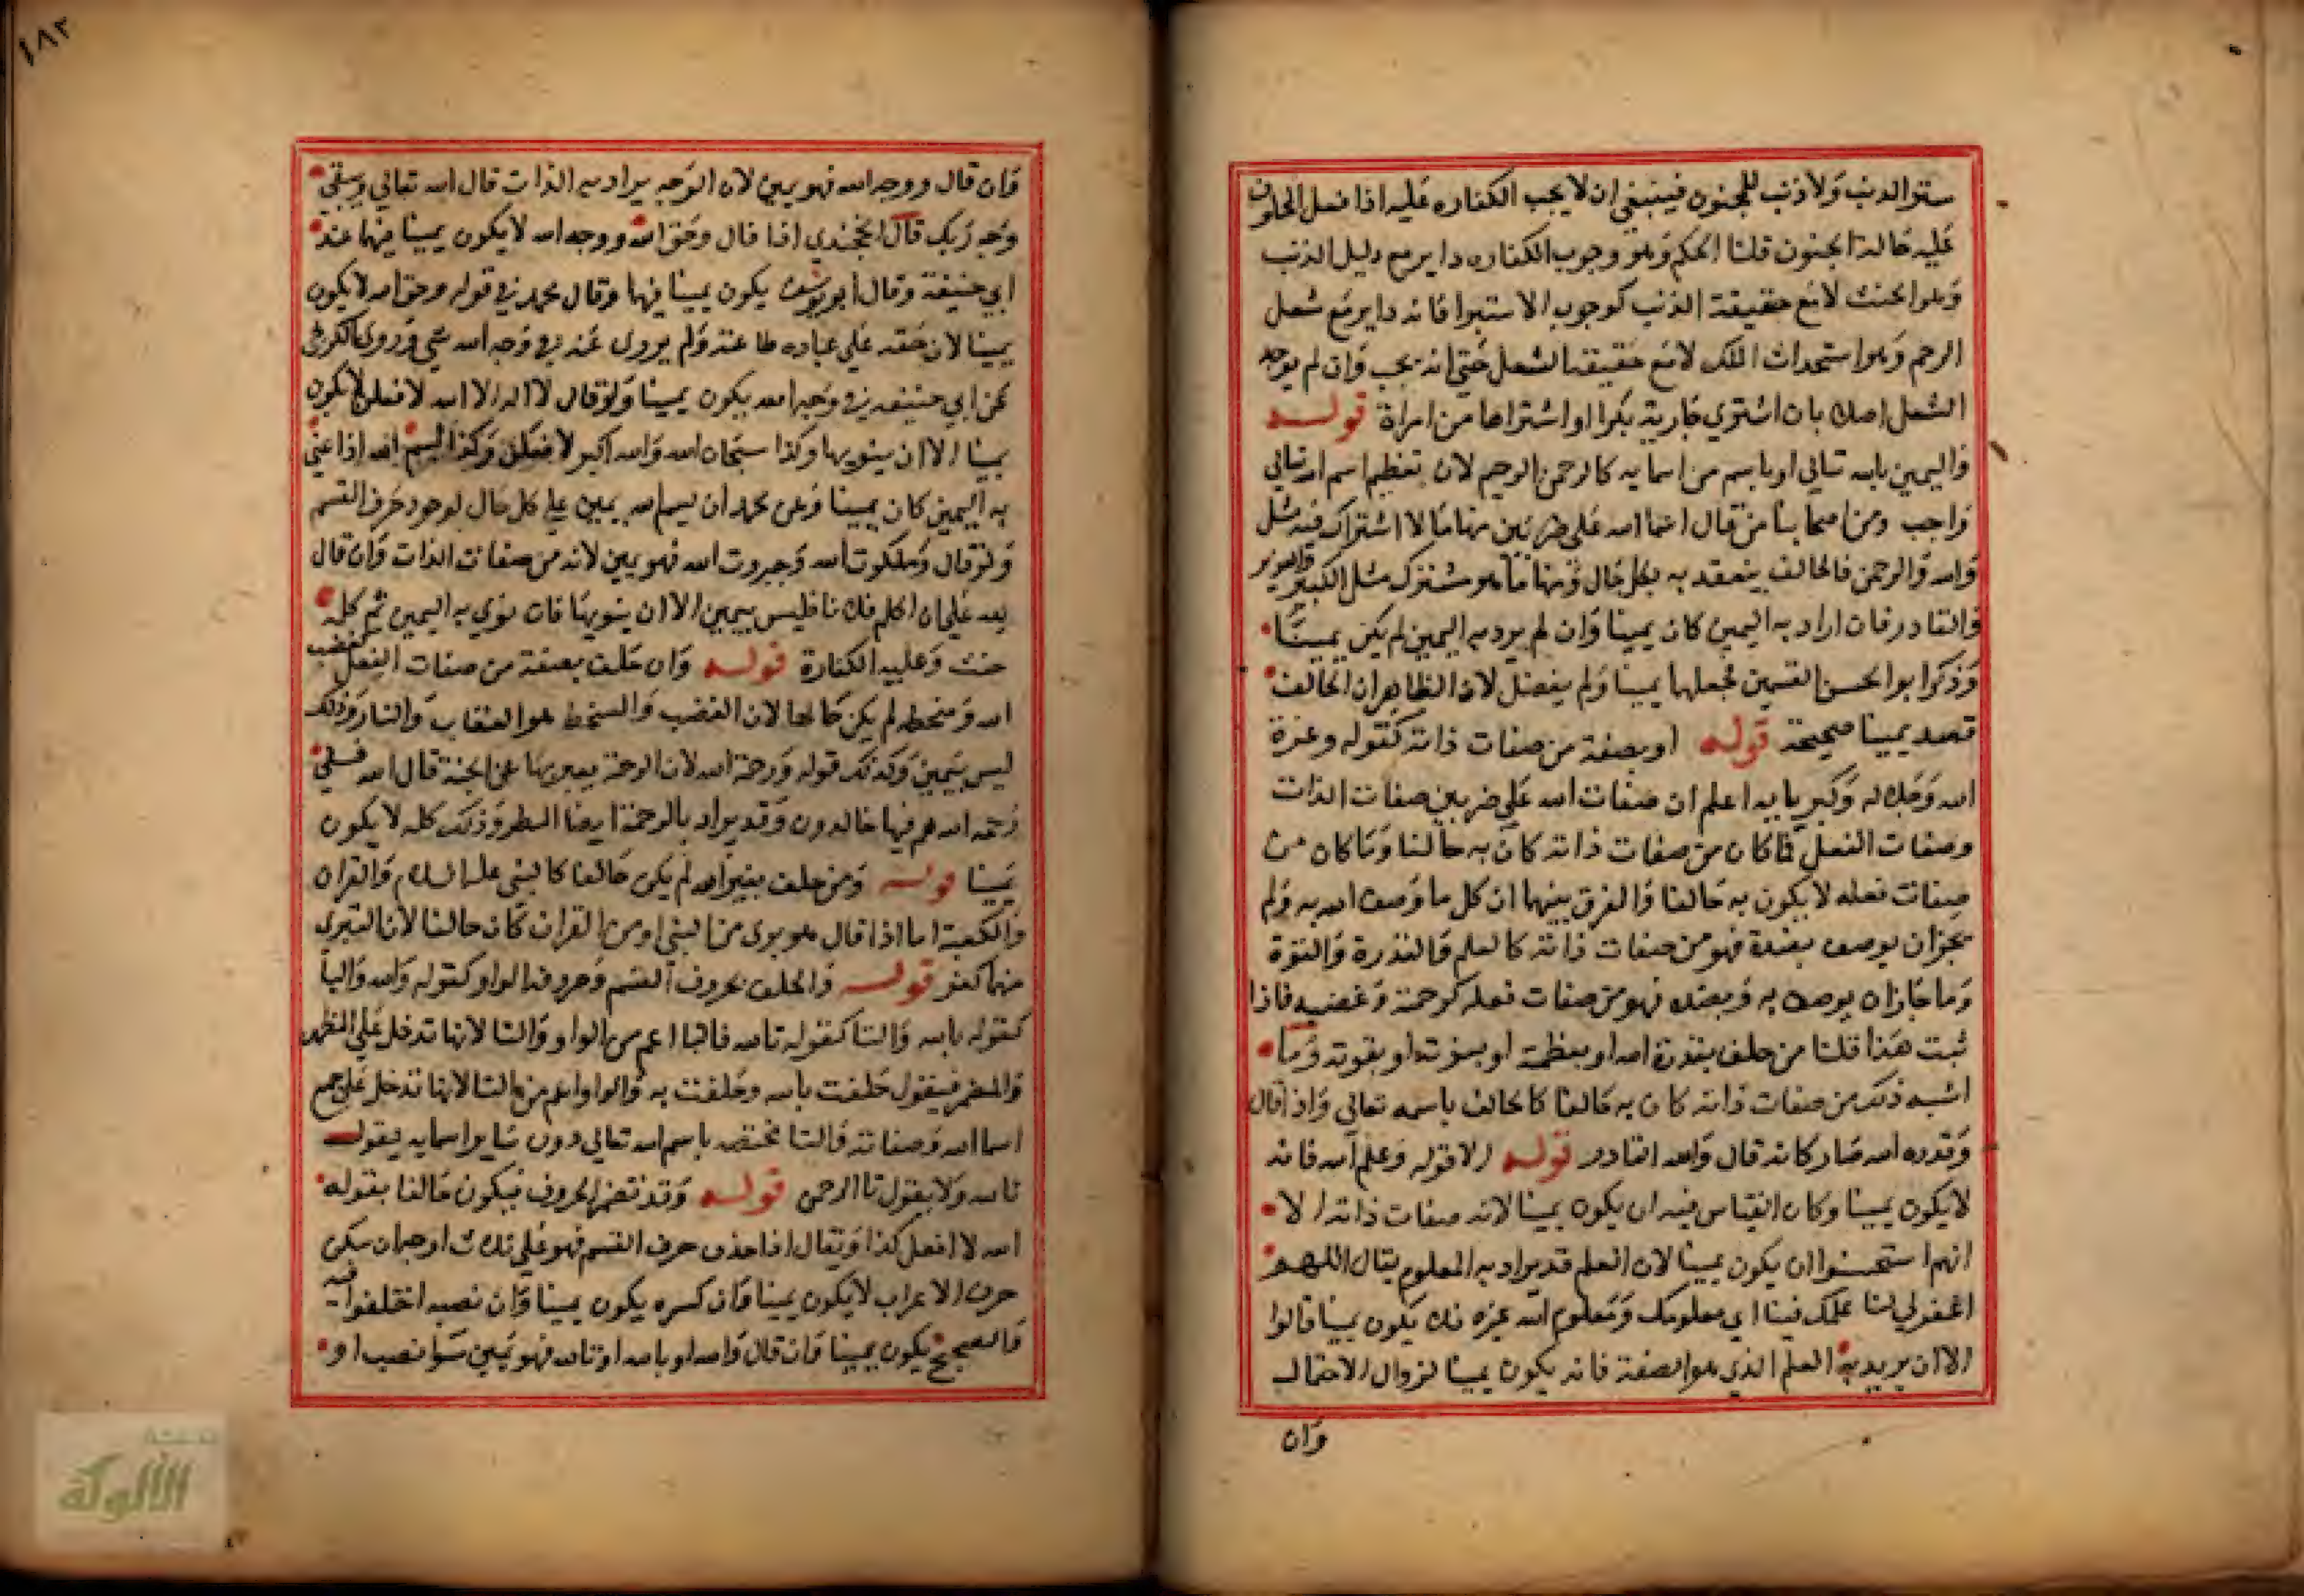 ستر الذنب ولا ذنب للمجنون فينبغي ان لا يجب الكفاره عليه اذا فعل المحلوف
عليه حالة الجنون قلنا الحكم وهو وجوب الكفاره داير مع دليل الذنب
وهو الحنث لا مع حقيقة الذنب كوجوب الاستبرا فانه داير مع شغل
الرحم وهو استحداث الملك لا مع حقيقة الشغل حتى انه يجب وان لم يوجد
الشغل اصلا بان اشتري جارية بكرا او اشتراها من امراة قوله
واليمين بالله تعالي او باسم من اسمايه كالرحمن الرحيم لان تعظيم اسم الله تعالي
واجب ومن اصحابنا من قال اسما الله علي ضربين منها ما لا اشتراك فيه مثل
والله والرحمن فالحالف ينعقد به بكل حال ومنها ما هو مشترك مثل الكبير والعزيز
والقادر فان اراد به اليمين كان يمينا وان لم يرد به اليمين لم يكن يمينا
وذكر ابو الحسن القسمين فجعلها يمينا ولم يفصل لان الظاهر ان الحالف
قصد يمينا صحيحة قوله او بصفة من صفات ذاته كقوله وعزة
الله وجلاله وكبريايه اعلم ان صفات الله علي ضربين صفات الذات
وصفات الفعل فما كان من صفات ذاته كان به حالفا وما كان من
صفات فعله لا يكون به حالفا والفرق بينهما ان كل ما وصف الله به ولم
يجز ان يوصف بضده فهو من صفات ذاته كالعلم والقدرة والقوة
وما جاز ان يوصف به وبضده فهو من صفات فعله كرحمته وغضبه فاذا
ثبت هذا قلنا من حلف بقدرة الله او بعظمته او بعزته او بقوته وما
اشبه ذلك من صفات ذاته كان به حالفا كالحالف باسمه تعالي واذا قال
وقدره الله صار كانه قال والله القادر قوله الا قوله وعلم الله فانه
لا يكون يمينا وكان القياس فيه ان يكون يمينا لانه صفات ذاته الا
انهم استحسنوا ان يكون يمينا لان العلم قد يراد به المعلوم يقال اللهم
اغفر لنا علمك فينا اي معلومك ومعلوم الله غيره فلا يكون يمينا قالوا
الا ان يريد به العلم الذي هو الصفة فانه يكون يمينا لزوال الاحتمال
وان
١٨٢
وان قال ووجه الله فهو يمين لان الوجه يراد به الذات قال الله تعالي ويبقي
وجه ربك قال الخجندي اذا قال وحق الله ووجه الله لا يكون يمينا فيهما عند
ابي حنيفة وقال ابو يوسف يكون يمينا فيها وقال محمد في قوله وحق الله لا يكون
يمينا لان حقه علي عباده طاعته ولم يروى عنه في وجه الله شي وروي الكرخي
عن ابي حنيفه في وجه الله يكون يمينا ولو قال لا اله الا الله لافعلن لا يكون
يمينا الا ان ينويها وكذا سبحان الله والله اكبر لافعلن وكذا بسم الله اذا عني
به اليمين كان يمينا وعن محمد ان بسم الله يمين علي كل حال لوجود حرف القسم
ولو قال وملكوت الله وجبروت الله فهو يمين لانه من صفات الذات وان قال
لله علي ان اكلم فلانا فليس بيمين الا ان ينويها فان نوي به اليمين ثم كلمه
حنث وعليه الكفارة قوله وان حلف بصفة من صفات الفعل كغضب
الله وسخطه لم يكن حالفا لان الغضب والسخط هو العقاب والنار وذلك
ليس بيمين وكذلك قوله ورحمة الله لان الرحمة يعبر بها عن الجنة قال الله ففي
رحمة الله هم فيها خالدون وقد يراد بالرحمة ايضا المطر وذلك كله لا يكون
يمينا قوله ومن حلف بغير الله لم يكن حالفا كالنبي عليه السلام والقران
والكعبة اما اذا قال هو بري من النبي او من القران كان حالفا لان التبري
منهما كفر قوله والحلف بحروف القسم وحروفه الواو كقوله والله والبا
كقوله بالله والتا كقوله تالله فالبا اعم من الواو والتا لانها تدخل علي المظهر
والمضمر فيقول حلفت بالله وحلفت به والواو اعم من التا لانها تدخل علي جميع
اسما الله وصفاته والتا مختصه باسم الله تعالي دون ساير اسمايه يقول
تالله ولا يقول تا الرحمن قوله وقد تضمر الحروف فيكون حالفا بقوله
الله لا افعل كذا ويقال اذا حذف حرف القسم فهو علي ثلاث اوجه ان سكن
حرف الاعراب لا يكون يمينا وان كسره يكون يمينا وان نصبه اختلفوا فيه
والصحيح يكون يمينا وان قال والله او بالله او تالله فهو يمين سوا نصب او
الألوكة